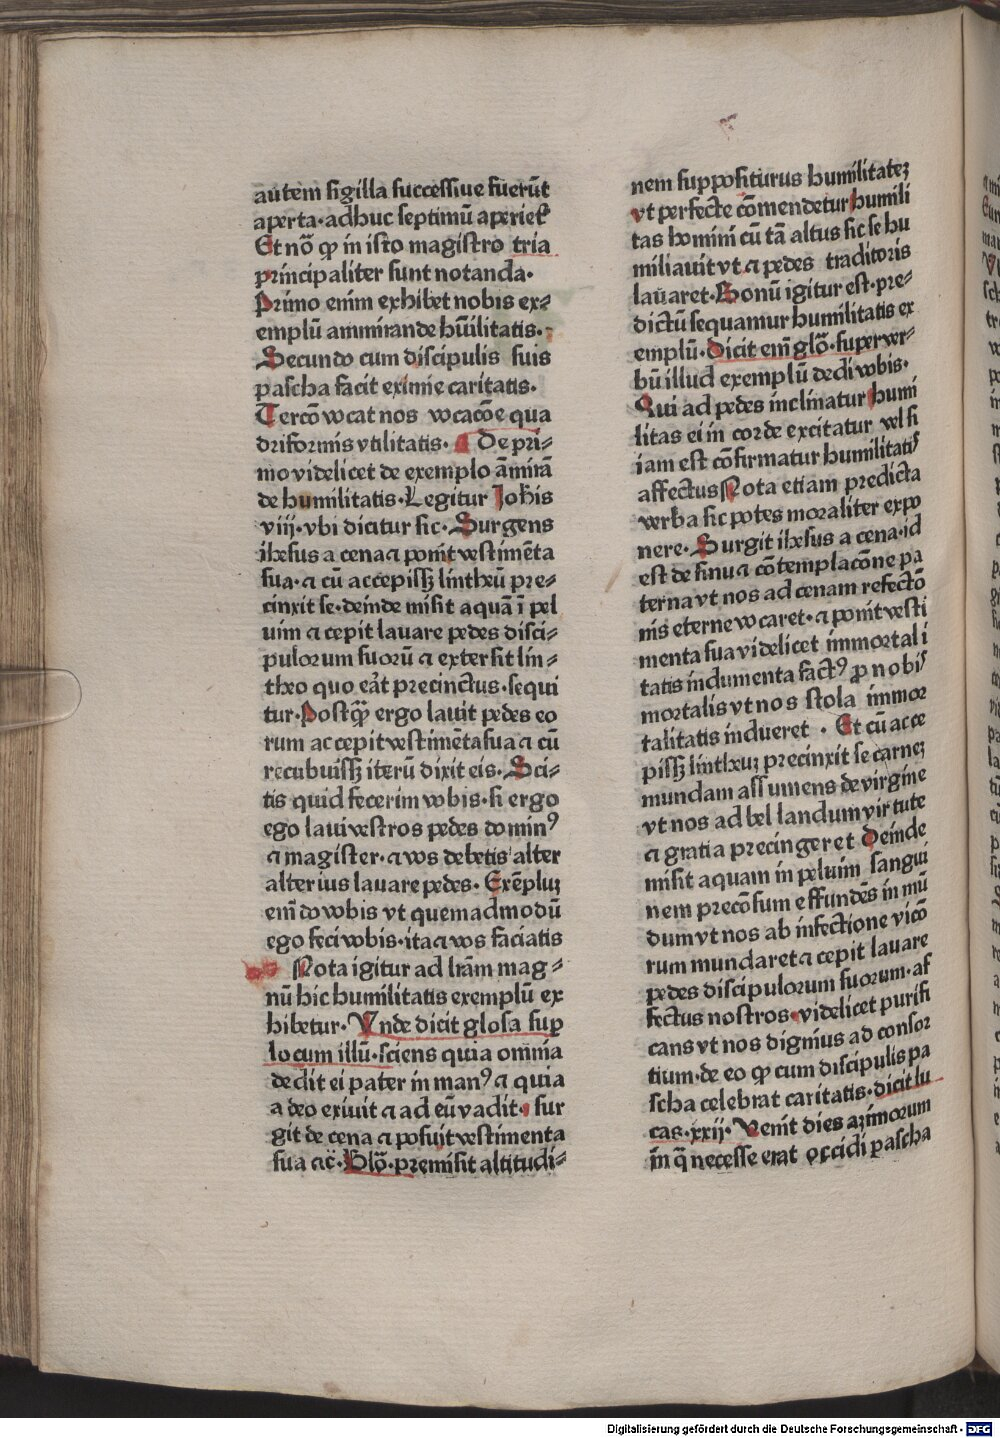 autem sigilla successiue fuerūt
aperta·adhuc septimū aperiet̛
Et nō ꝙ in isto magistro tria
principaliter sunt notanda·
Primo enim exhibet nobis ex⸗
emplū ammirande hūilitatis·
Secundo cum discipulis suis
pascha facit eximie caritatis·
Tercō vocat nos vocacōe qua
driformis vtilitatis· De pri⸗
mo videlicet de exemplo āmirā
de humilitatis·Legitur Joħis
viij·vbi dicitur sic·Surgens
ihesus a cena ⁊ ponit vestimēta
sua·⁊ cū accepissꝫ lintheū pre⸗
cinxit se·deinde misit aquā ī pel
uim ⁊ cepit lauare pedes disci⸗
pulorum suorū ⁊ extersit lin⸗
theo quo eāt precinctus·sequi
tur·Postꝙ̄ ergo lauit pedes eo
rum accepit vestimēta sua ⁊ cū
recubuissꝫ iterū dixit eis·Sci⸗
tis quid fecerim vobis·si ergo
ego laui vestros pedes dominꝰ
⁊ magister·⁊ vos debetis alter
alterius lauare pedes·Exēpluꝫ
em̄ do vobis vt quemadmodū
ego feci vobis·ita ⁊ vos faciatis
Nota igitur ad lr̄am mag⸗
nū hic humilitatis exemplū ex
hibetur·Vnde dicit glosa suꝑ
locum illū·sciens quia omnia
dedit ei pater in manꝰ ⁊ quia
a deo exiuit ⁊ ad eū vadit·sur
git de cena ⁊ posuit vestimenta
sua ⁊c̄·Glō·premisit altitudi⸗
nem suppositurus humilitateꝫ
vt perfecte cōmendetur humili
tas homini cū tā altus sic se hu
miliauit vt ⁊ pedes traditoris
lauaret·Bonū igitur est·pre⸗
dictū sequamur humilitatis ex
emplū·Dicit em̄ glō·super ver⸗
bū illud exemplū dedi vobis·
Qui ad pedes inclinatur humi
litas ei in corde excitatur vel si
iam est cōfirmatur humilitatis
affectus Nota etiam predicta
verba sic potes moraliter expo
nere·Surgit ihesus a cena·id
est de sinu ⁊ cōtemplacōne pa
terna vt nos ad cenam refectō
nis eterne vocaret·⁊ ponit vesti
menta sua videlicet immortali
tatis indumenta factꝰ ꝓ nobis
mortalis vt nos stola immor
talitatis indueret · Et cū acce
pissꝫ lintheuꝫ precinxit se carneꝫ
mundam assumens de virgine
vt nos ad bellandum virtute
⁊ gratia precingeret Deinde
misit aquam in peluim sangui
nem precōsum effundēs in mū
dum vt nos ab infectione vicō
rum mundaret ⁊ cepit lauare
pedes discipulorum suorum·af
fectus nostros·videlicet purifi
cans vt nos dignius ad consor
tium·de eo ꝙ cum discipulis pa
scha celebrat caritatis·dicit lu
cas·xxij·Venit dies azimorum
in q̄ necesse erat occidi pascha
Digitalisierung gefördert durch die Deutsche Forschungsgemeinschaft - DFG